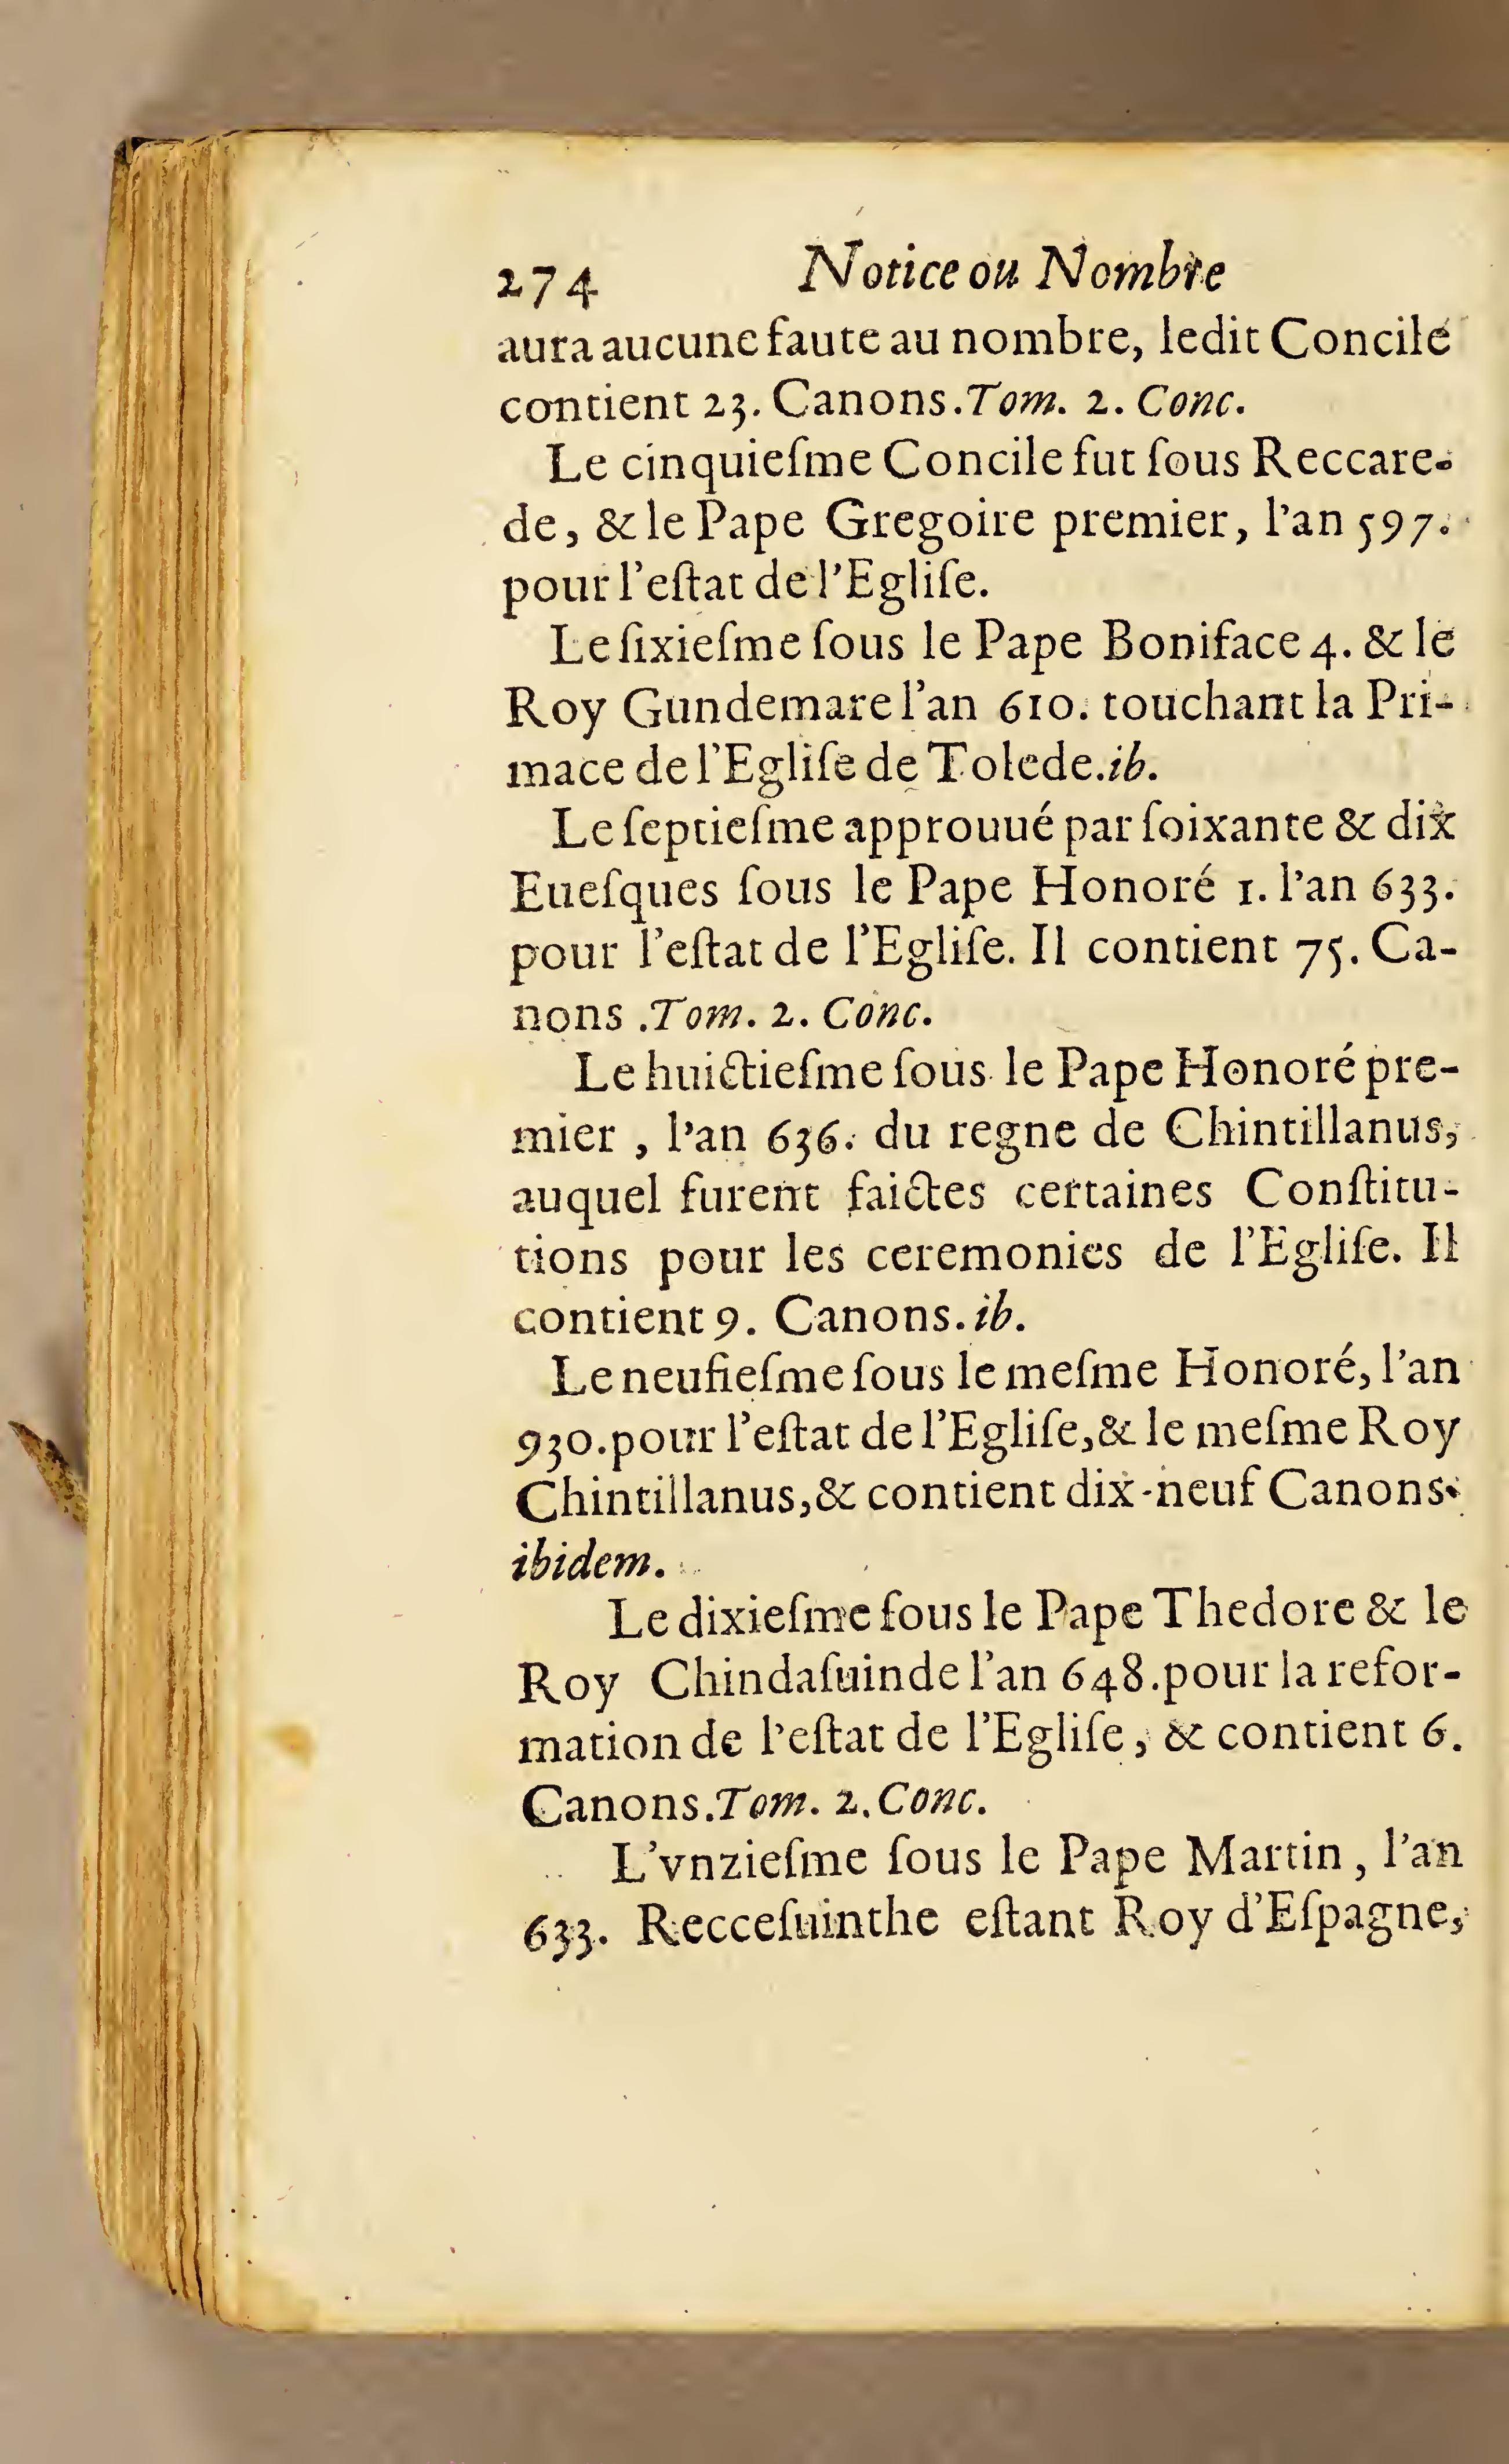 274 Notice ou Nombre
aura aucune faute au nombre, ledit Concile
contient 23. Canons. Tom. 2. Conc.
Le cinquieſme Concile fut ſous Reccare-
de, & le Pape Gregoire premier, l'an 597.
pour l'eſtat de l'Egliſe.
Le ſixieſme ſous le Pape Boniface 4. & le
Roy Gundemare l'an 610. touchant la Pri-
mace de l'Egliſe de Tolede. ib.
Le ſeptieſme approuué par ſoixante & dix
Eueſques ſous le Pape Honoré 1. l'an 633.
pour l'eſtat de l'Egliſe. Il contient 75. Ca-
nons . Tom. 2. Conc.
Le huictieſme ſous le Pape Honoré pre-
mier , l'an 636. du regne de Chintillanus,
auquel furent faictes certaines Conſtitu-
tions pour les ceremonies de l'Egliſe. Il
contient 9. Canons. ib.
Le neufieſme ſous le meſme Honoré, l'an
930. pour l'eſtat de l'Egliſe, & le meſme Roy
Chintillanus, & contient dix-neuf Canons.
ibidem.
Le dixieſme ſous le Pape Thedore & le
Roy Chindaſuinde l'an 648. pour la refor-
mation de l'eſtat de l'Egliſe, & contient 6.
Canons. Tom. 2. Conc.
L'vnzieſme ſous le Pape Martin, l'an
633. Recceſuinthe eſtant Roy d'Eſpagne,